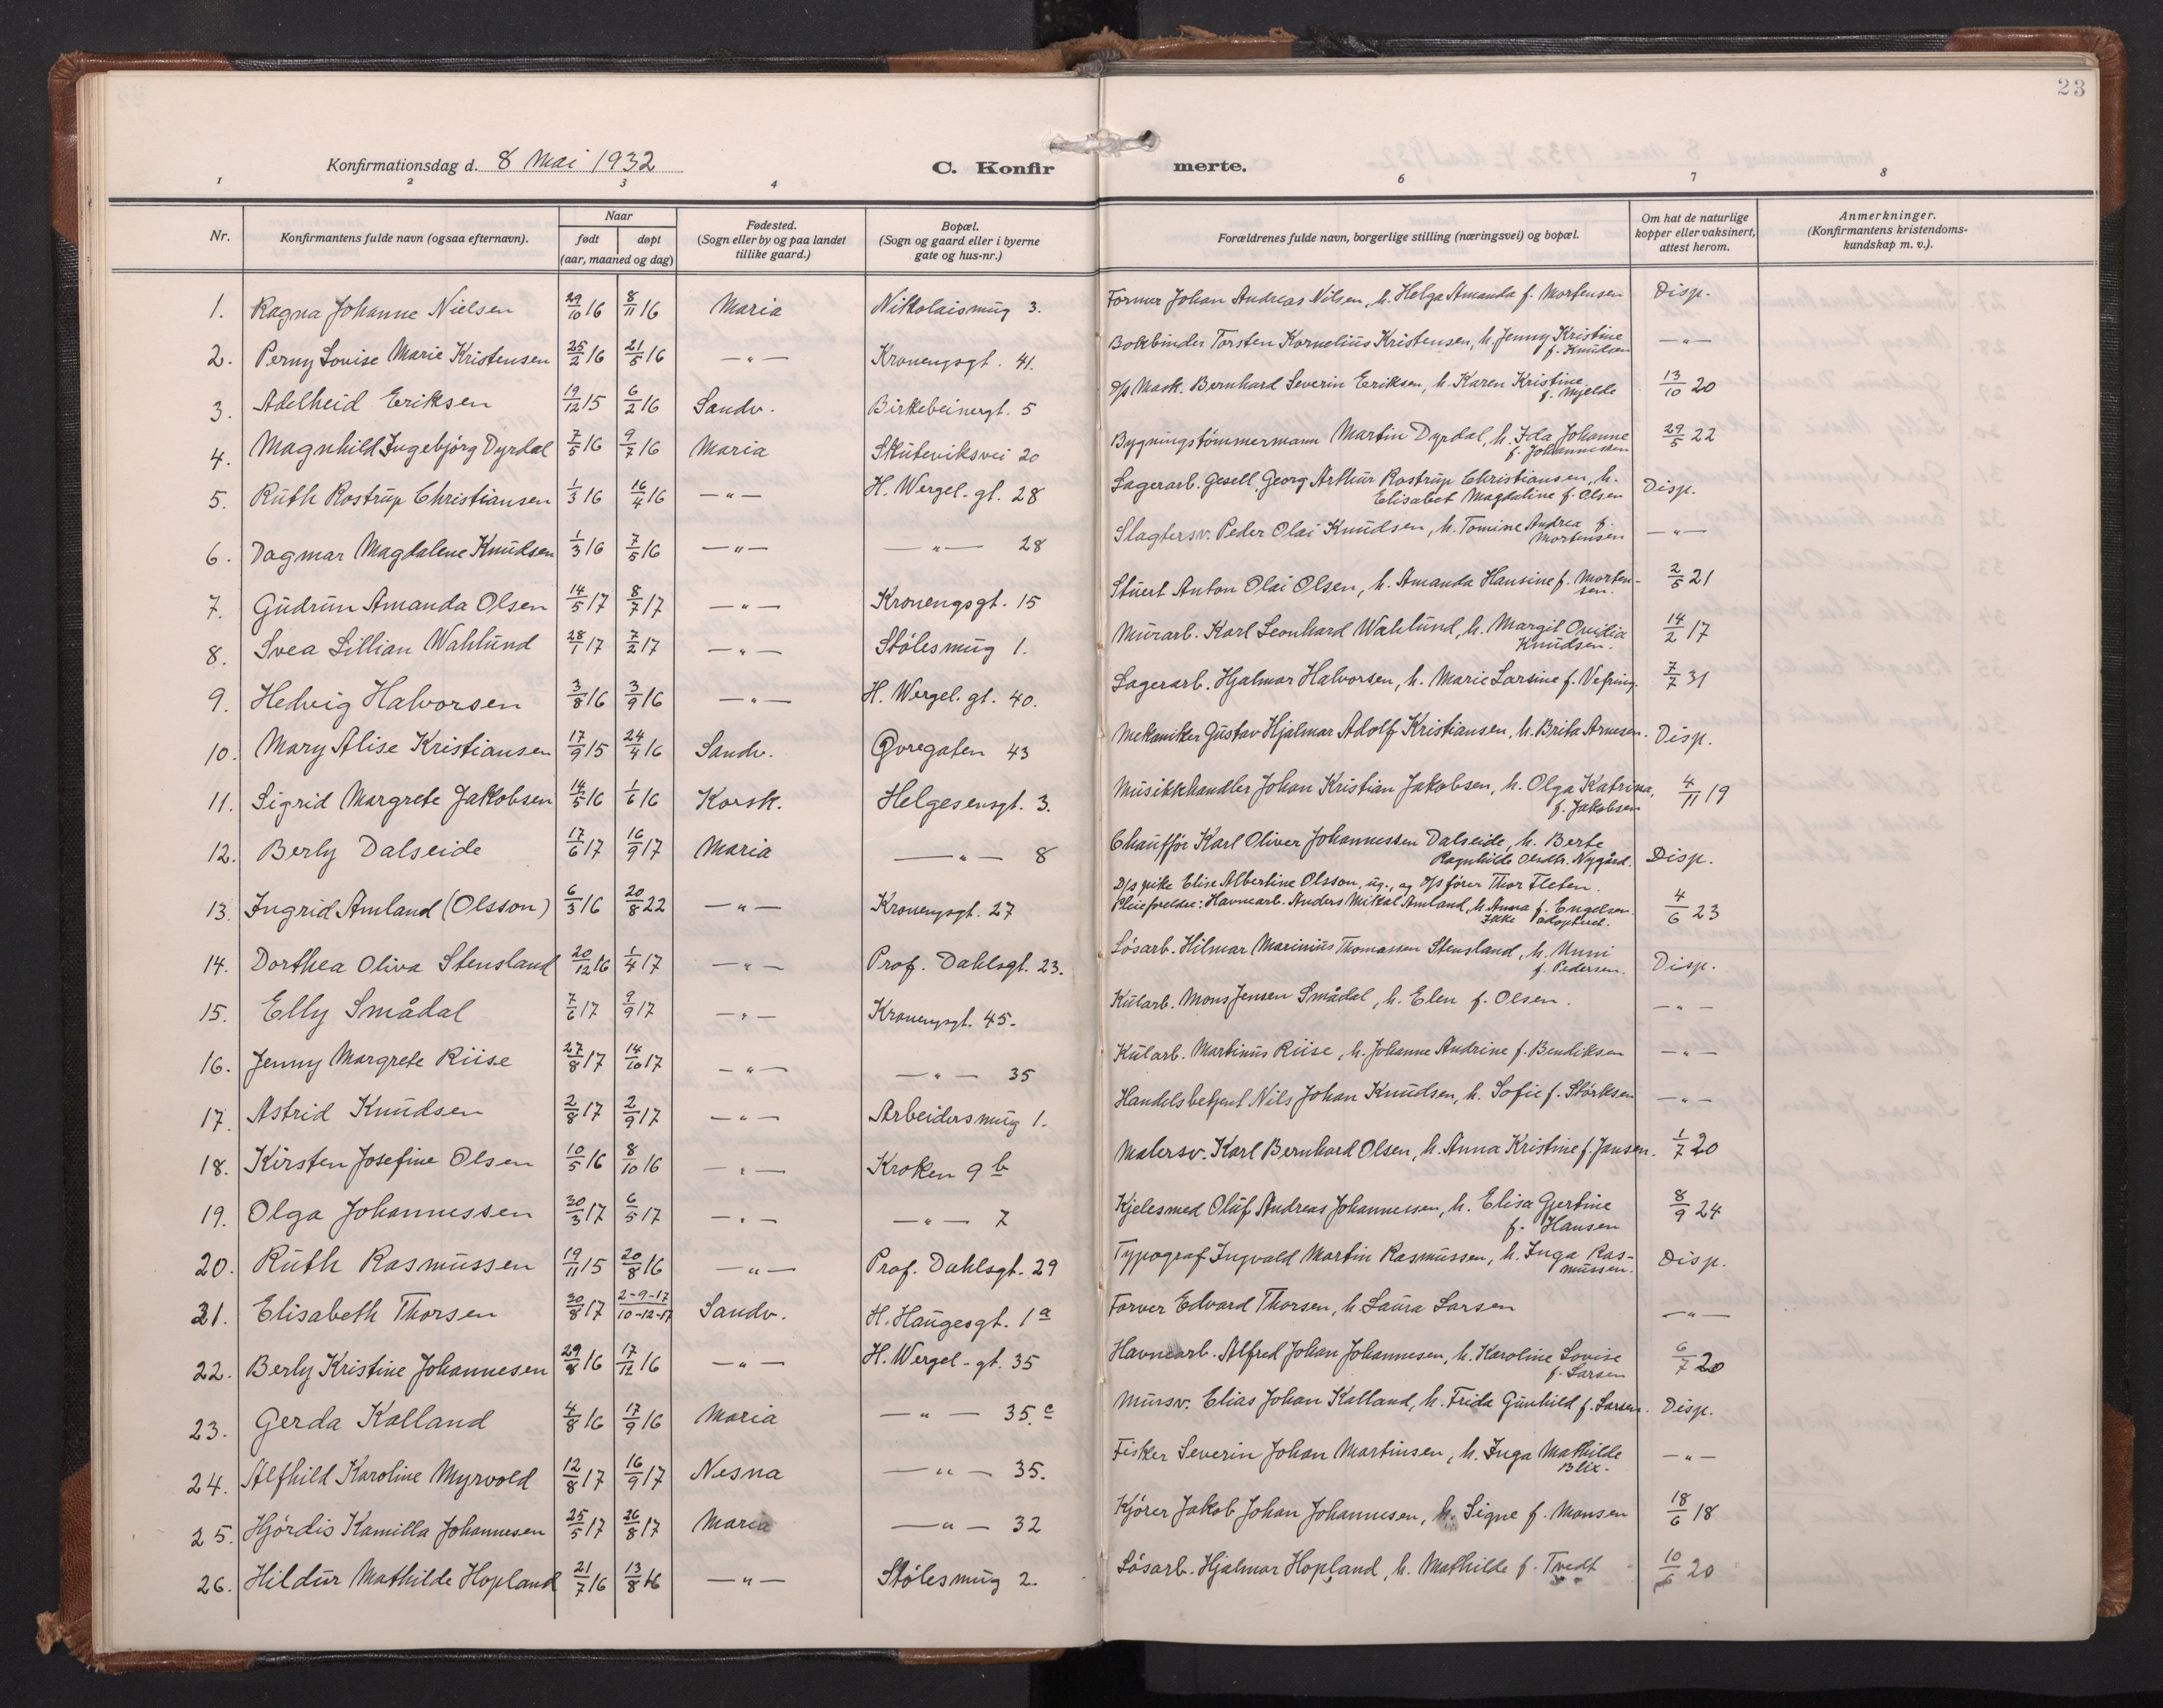 23
Konfirmationsdag d. 8 Mai 1932
C. Konfir merte.
1 2 3 4 6 7 8
Nr. | Konfirmantens fulde navn (ogsaa efternavn). | Naar født døpt (aar, maaned og dag) | Fødested. (Sogn eller by og paa landet tillike gaard.) | Bopæl. (Sogn og gaard eller i byerne gate og hus-nr.) | Forældrenes fulde navn, borgerlige stilling (næringsvei) og bopæl. | Om hat de naturlige kopper eller vaksinert, attest herom. | Anmerkninger. (Konfirmantens kristendomskundskap m. v.).
1. Ragna Johanne Nielsen 29/10 16 8/11 16 Maria Nikolaismug 3. Former Johan Andreas Nilsen, h. Helga Amanda f. Mortensen Disp.
2. Perny Lovise Marie Kristensen 25/2 16 21/5 16 —"— Kronengsgt. 41. Bokbinder Torsten Kornelius Kristensen, h. Jenny Kristine f. Knudsen —"—
3. Adelheid Eriksen 19/12 15 6/2 16 Sandv. Birkebeinergt. 5 Mask. Bernhard Severin Eriksen, h. Karen Kristine f. Mjelde 13/10 20
4. Magnhild Ingebjörg Dyrdal 7/5 16 9/7 16 Maria Skuteviksvei 20 Bygningstömmermann Martin Dyrdal, h. Ida Johanne f. Johannessen 29/5 22
5. Ruth Rostrup Christiansen 1/3 16 16/4 16 —"— H. Wergel. gt. 28 Lagerarb. Gesell Georg Arthur Rostrup Christiansen, h. Elisabet Magdaline f. Olsen Disp.
6. Dagmar Magdalene Knudsen 1/3 16 7/5 16 —"— —"— 28 Slagtersv. Peder Olai Knudsen, h. Tomine Andrea f. Mortensen —"—
7. Gudrun Amanda Olsen 14/5 17 8/7 17 —"— Kronengsgt. 15 Stuert Anton Olai Olsen, h. Amanda Hansine f. Mortensen. 2/5 21
8. Svea Lillian Wahlund 28/1 17 7/2 17 —"— Stölesmug 1. Murarb. Karl Leonhard Wahlund, h. Margit Ovidia Knudsen. 14/2 17
9. Hedvig Halvorsen 3/8 16 3/9 16 —"— H. Wergel. gt. 40. Lagerarb. Hjalmar Halvorsen, h. Marie Larsine f. Vefring. 7/7 31
10. Mary Alise Kristiansen 17/9 15 24/4 16 Sandv. Øvregaten 43 Mekaniker Gustav Hjalmar Adolf Kristiansen, h. Brita Arnesen. Disp.
11. Sigrid Margrete Jakobsen 14/5 16 1/6 16 Korsk. Helgesensgt. 3. Musikkhandler Johan Kristian Jakobsen, h. Olga Katrina, f. Jakobsen 4/11 19
12. Berly Dalseide 17/6 17 16/9 17 Maria —"— 8 Chaufför Karl Oliver Johannessen Dalseide, h. Berte Ragnhilde Olsdtr. Nygård. Disp.
13. Ingrid Amland (Olsson) 6/3 16 20/8 22 —"— Kronengsgt. 27 D/s pike Elise Albertine Olsson, ug., og förer Thor Fleten. Pleieforeldre: Havnearb. Anders Mikal Amland, h. Anna f. Engelsen. Ikke adoptert. 4/6 23
14. Dorthea Oliva Stensland 20/12 16 1/4 17 —"— Prof. Dahlsgt. 23. Lösarb. Hilmar Marinius Thomassen Stensland, h. Unni f. Pedersen. Disp.
15. Elly Smådal 7/6 17 9/9 17 —"— Kronengsgt. 45. Kularb. Mons Jensen Smådal, h. Elen f. Olsen. —"—
16. Jenny Margrete Riise 27/8 17 14/10 17 —"— —"— 35 Kularb. Martinus Riise, h. Johanne Andrine f. Bendiksen —"—
17. Astrid Knudsen 2/8 17 2/9 17 —"— Arbeidersmug 1. Handelsbetjent Nils Johan Knudsen, h. Sofie f. Störksen —"—
18. Kirsten Josefine Olsen 10/5 16 8/10 16 —"— Kroken 9 b Malersv. Karl Bernhard Olsen, h. Anna Kristine f. Jansen. 1/7 20
19. Olga Johannessen 30/3 17 6/5 17 —"— —"— 7 Kjelesmed Oluf Andreas Johannessen, h. Elisa Gjertine f. Hansen 8/9 24
20. Ruth Rasmussen 19/11 15 20/8 16 —"— Prof. Dahlsgt. 29 Typograf Ingvald Martin Rasmussen, h. Inga Rasmussen. Disp.
21. Elisabeth Thorsen 30/8 17 2-9-17 10-12-17 Sandv. H. Haugesgt. 1 a Farver Edvard Thorsen, h. Laura Larsen —"—
22. Berly Kristine Johannesen 29/8 16 17/12 16 —"— H. Wergel. gt. 35 Havnearb. Alfred Johan Johannesen, h. Karoline Lovise f. Larsen 6/7 20
23. Gerda Kalland 4/8 16 17/9 16 Maria —"— 35. c Mursv. Elias Johan Kalland, h. Frida Gunhild f. Larsen. Disp.
24. Alfhild Karoline Myrvold 12/8 17 16/9 17 Nesna —"— 35. Fisker Severin Johan Martinsen, h. Inga Mathilde Blix. —"—
25. Hjördis Kamilla Johannesen 25/5 17 26/8 17 Maria —"— 32 Kjörer Jakob Johan Johannesen, h. Signe f. Monsen 18/6 18
26. Hildur Mathilde Hopland 21/7 16 13/8 16 —"— Stölesmug 2. Lösarb. Hjalmar Hopland, h. Mathilde f. Tvedt 10/6 20